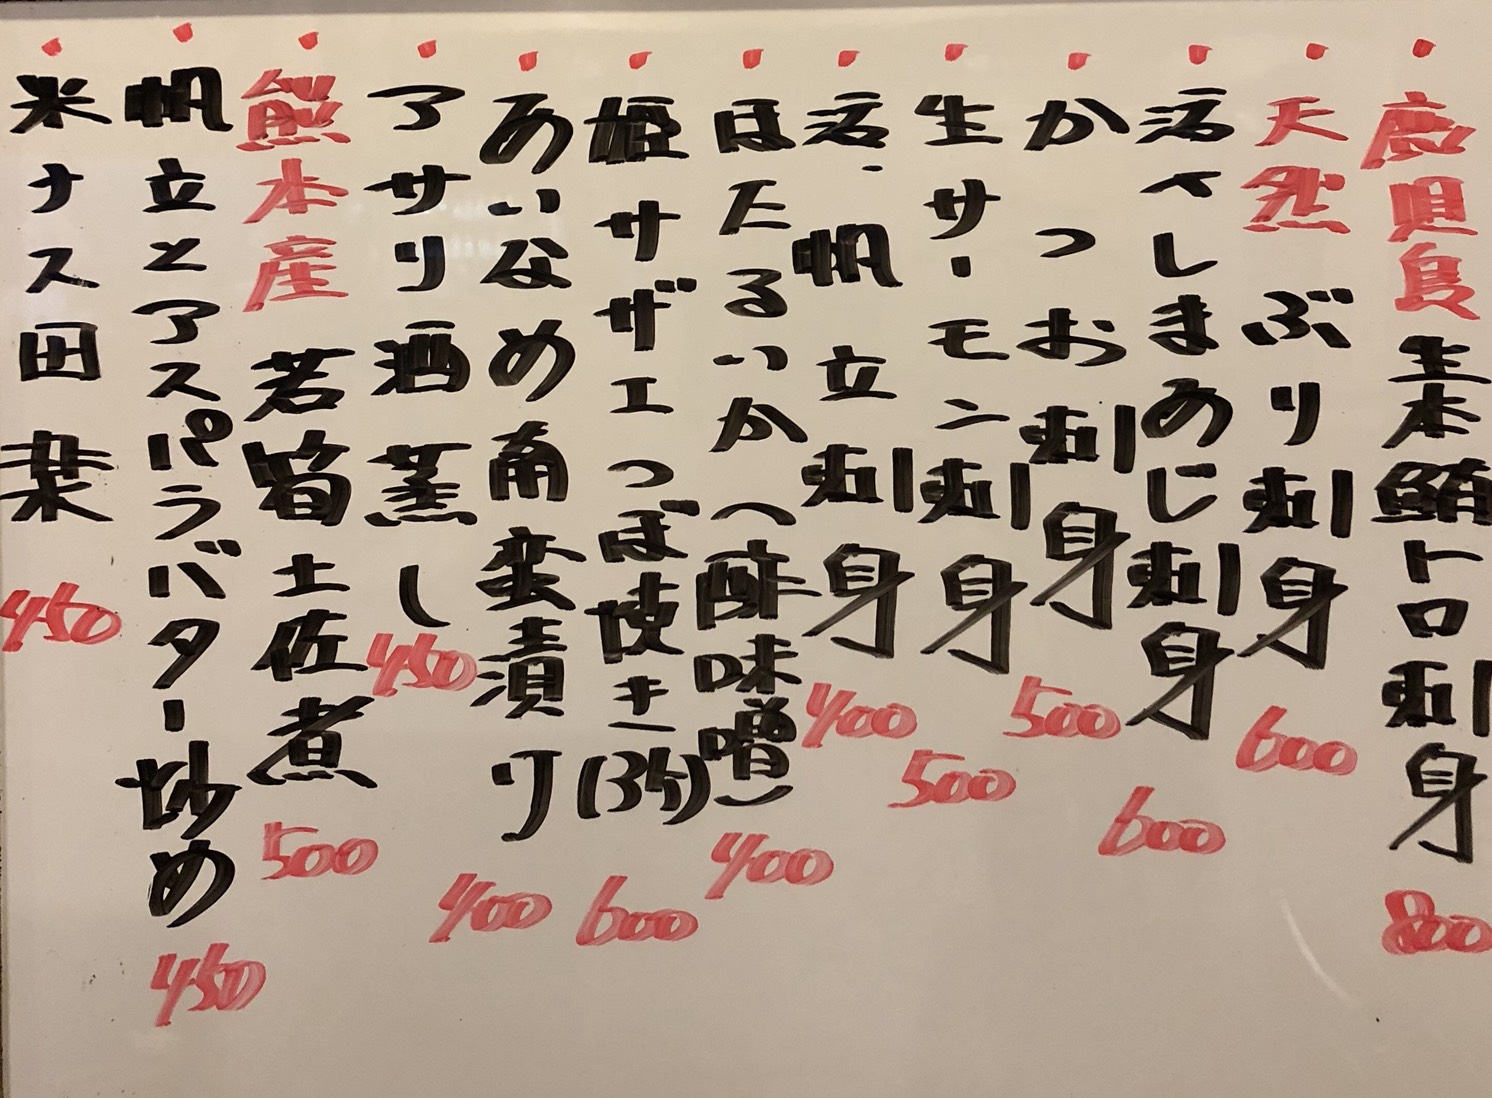 鹿児島 生本鮪トロ刺身 800
天然 ぶり刺身 600
活〆しまあじ刺身 600
かつお刺身 500
生サーモン刺身 500
活、帆立刺身 400
ほたるいか(酢味噌) 400
姫サザエつぼ焼き(3ケ) 600
あいなめ南蛮漬リ 400
アサリ酒蒸し 450
熊本産 若筍土佐煮 500
帆立とアスパラバター炒め 450
米ナス田楽 450